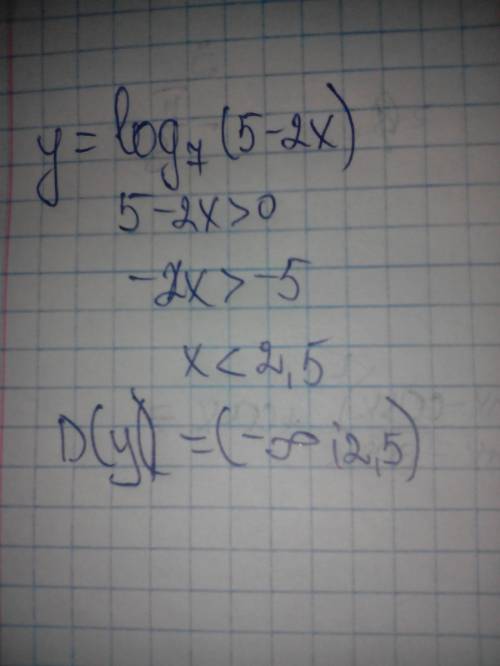 y = log₇ (5-2x)
5-2x>0
-2x>-5
x<2,5
D(y) = (-∞;2,5)